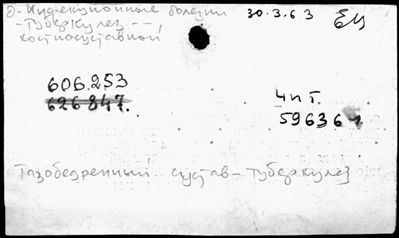 д-Инфекционные болезни 30.3.63
-Туберкулез --
костносуставной
606.253
626847.
4 п т.
59636
Тазобедренный сустав-туберкулез